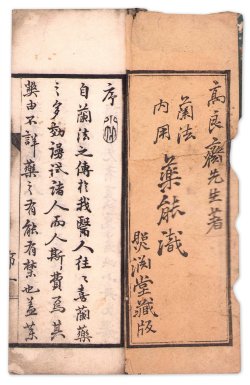 高良齋先生著
蘭法
内用
藥能識
堂藏版
序
自蘭法之傳於我醫人往々喜蘭藥
之多効 試諸人而人斯費焉其
弊由不詳藥之有能有禁也蓋